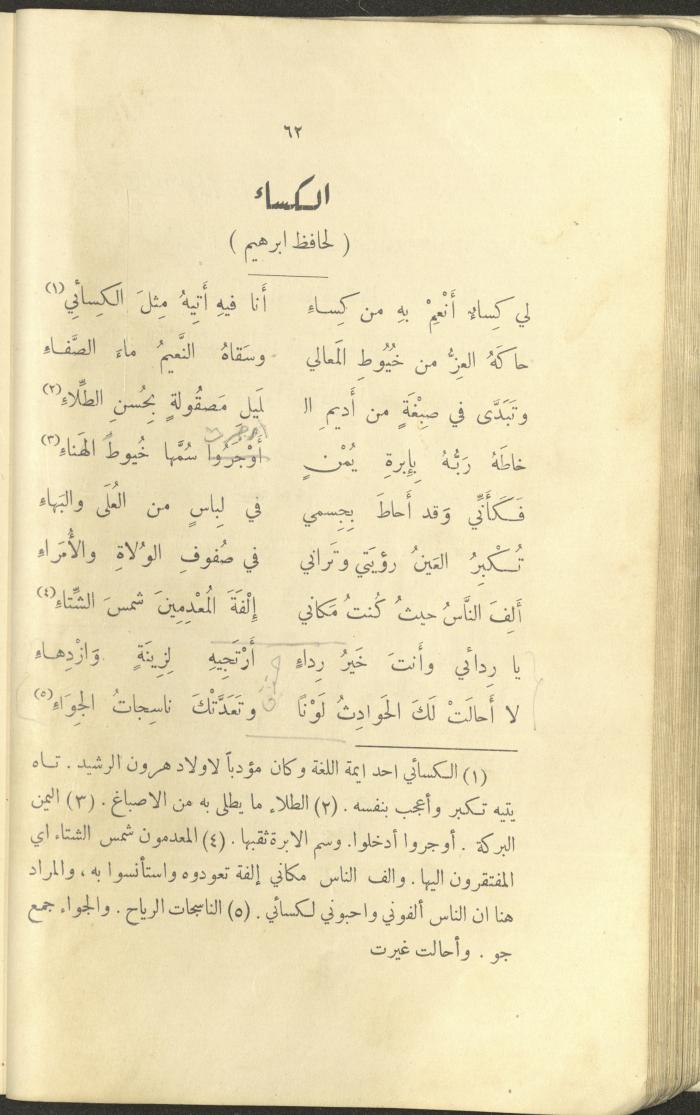 ٦٢
الكساء
( لحافظ ابرهيم )
لي كِساءٌ أَنْعِمْ بِهِ من كِساءِ أَنا فيهِ أَتِيهُ مِثلَ الكِسائِي(١)
حاكَهُ العِزُّ من خُيُوطِ المَعالي وسَقاهُ النَّعيمُ ماءَ الصَّفاءِ
وتَبَدَّى في صِبْغَةٍ من أَديمِ الـ لَيلِ مَصقُولةٍ بِحُسنِ الطِّلاءِ(٢)
خاطَهُ رَبُّهُ بِإِبرةِ يُمْنٍ أَوْجَرُوا سُمَّها خُيوطَ الهَناءِ(٣)
فَكَأَنّي وَقد أَحاطَ بِجِسمي في لِباسٍ من العُلَى والبَهاءِ
تُكْبِرُ العَينُ رؤيَتي وتَراني في صُفوفِ الوُلاةِ والأُمَراءِ
أَلِفَ النَّاسُ حيثُ كُنتُ مَكاني إِلْفَةَ المُعْدِمِينَ شَمسَ الشِّتاءِ(٤)
يا رِدائي وأَنتَ خَيرُ رِداءٍ أَرْتَجِيهِ لِزِينَةٍ وَازْدِهاءِ
لا أَحالَتْ لَكَ الحَوادِثُ لَوْنًا وتَعَدَّتْكَ ناسِجاتُ الجِوَاءِ(٥)
(١) الكسائي احد ايمة اللغة وكان مؤدباً لاولاد هرون الرشيد . تاه
يتيه تكبر وأعجب بنفسه . (٢) الطلاء ما يطلى به من الاصباغ . (٣) اليمن
البركة . أوجروا أدخلوا. وسم الابرة ثقبها . (٤) المعدمون شمس الشتاء اي
المفتقرون اليها . والف الناس مكاني إلفة تعودوه واستأنسوا به ، والمراد
هنا ان الناس ألفوني واحبوني لكسائي . (٥) الناسجات الرياح . والجواء جمع
جو . وأحالت غيرت